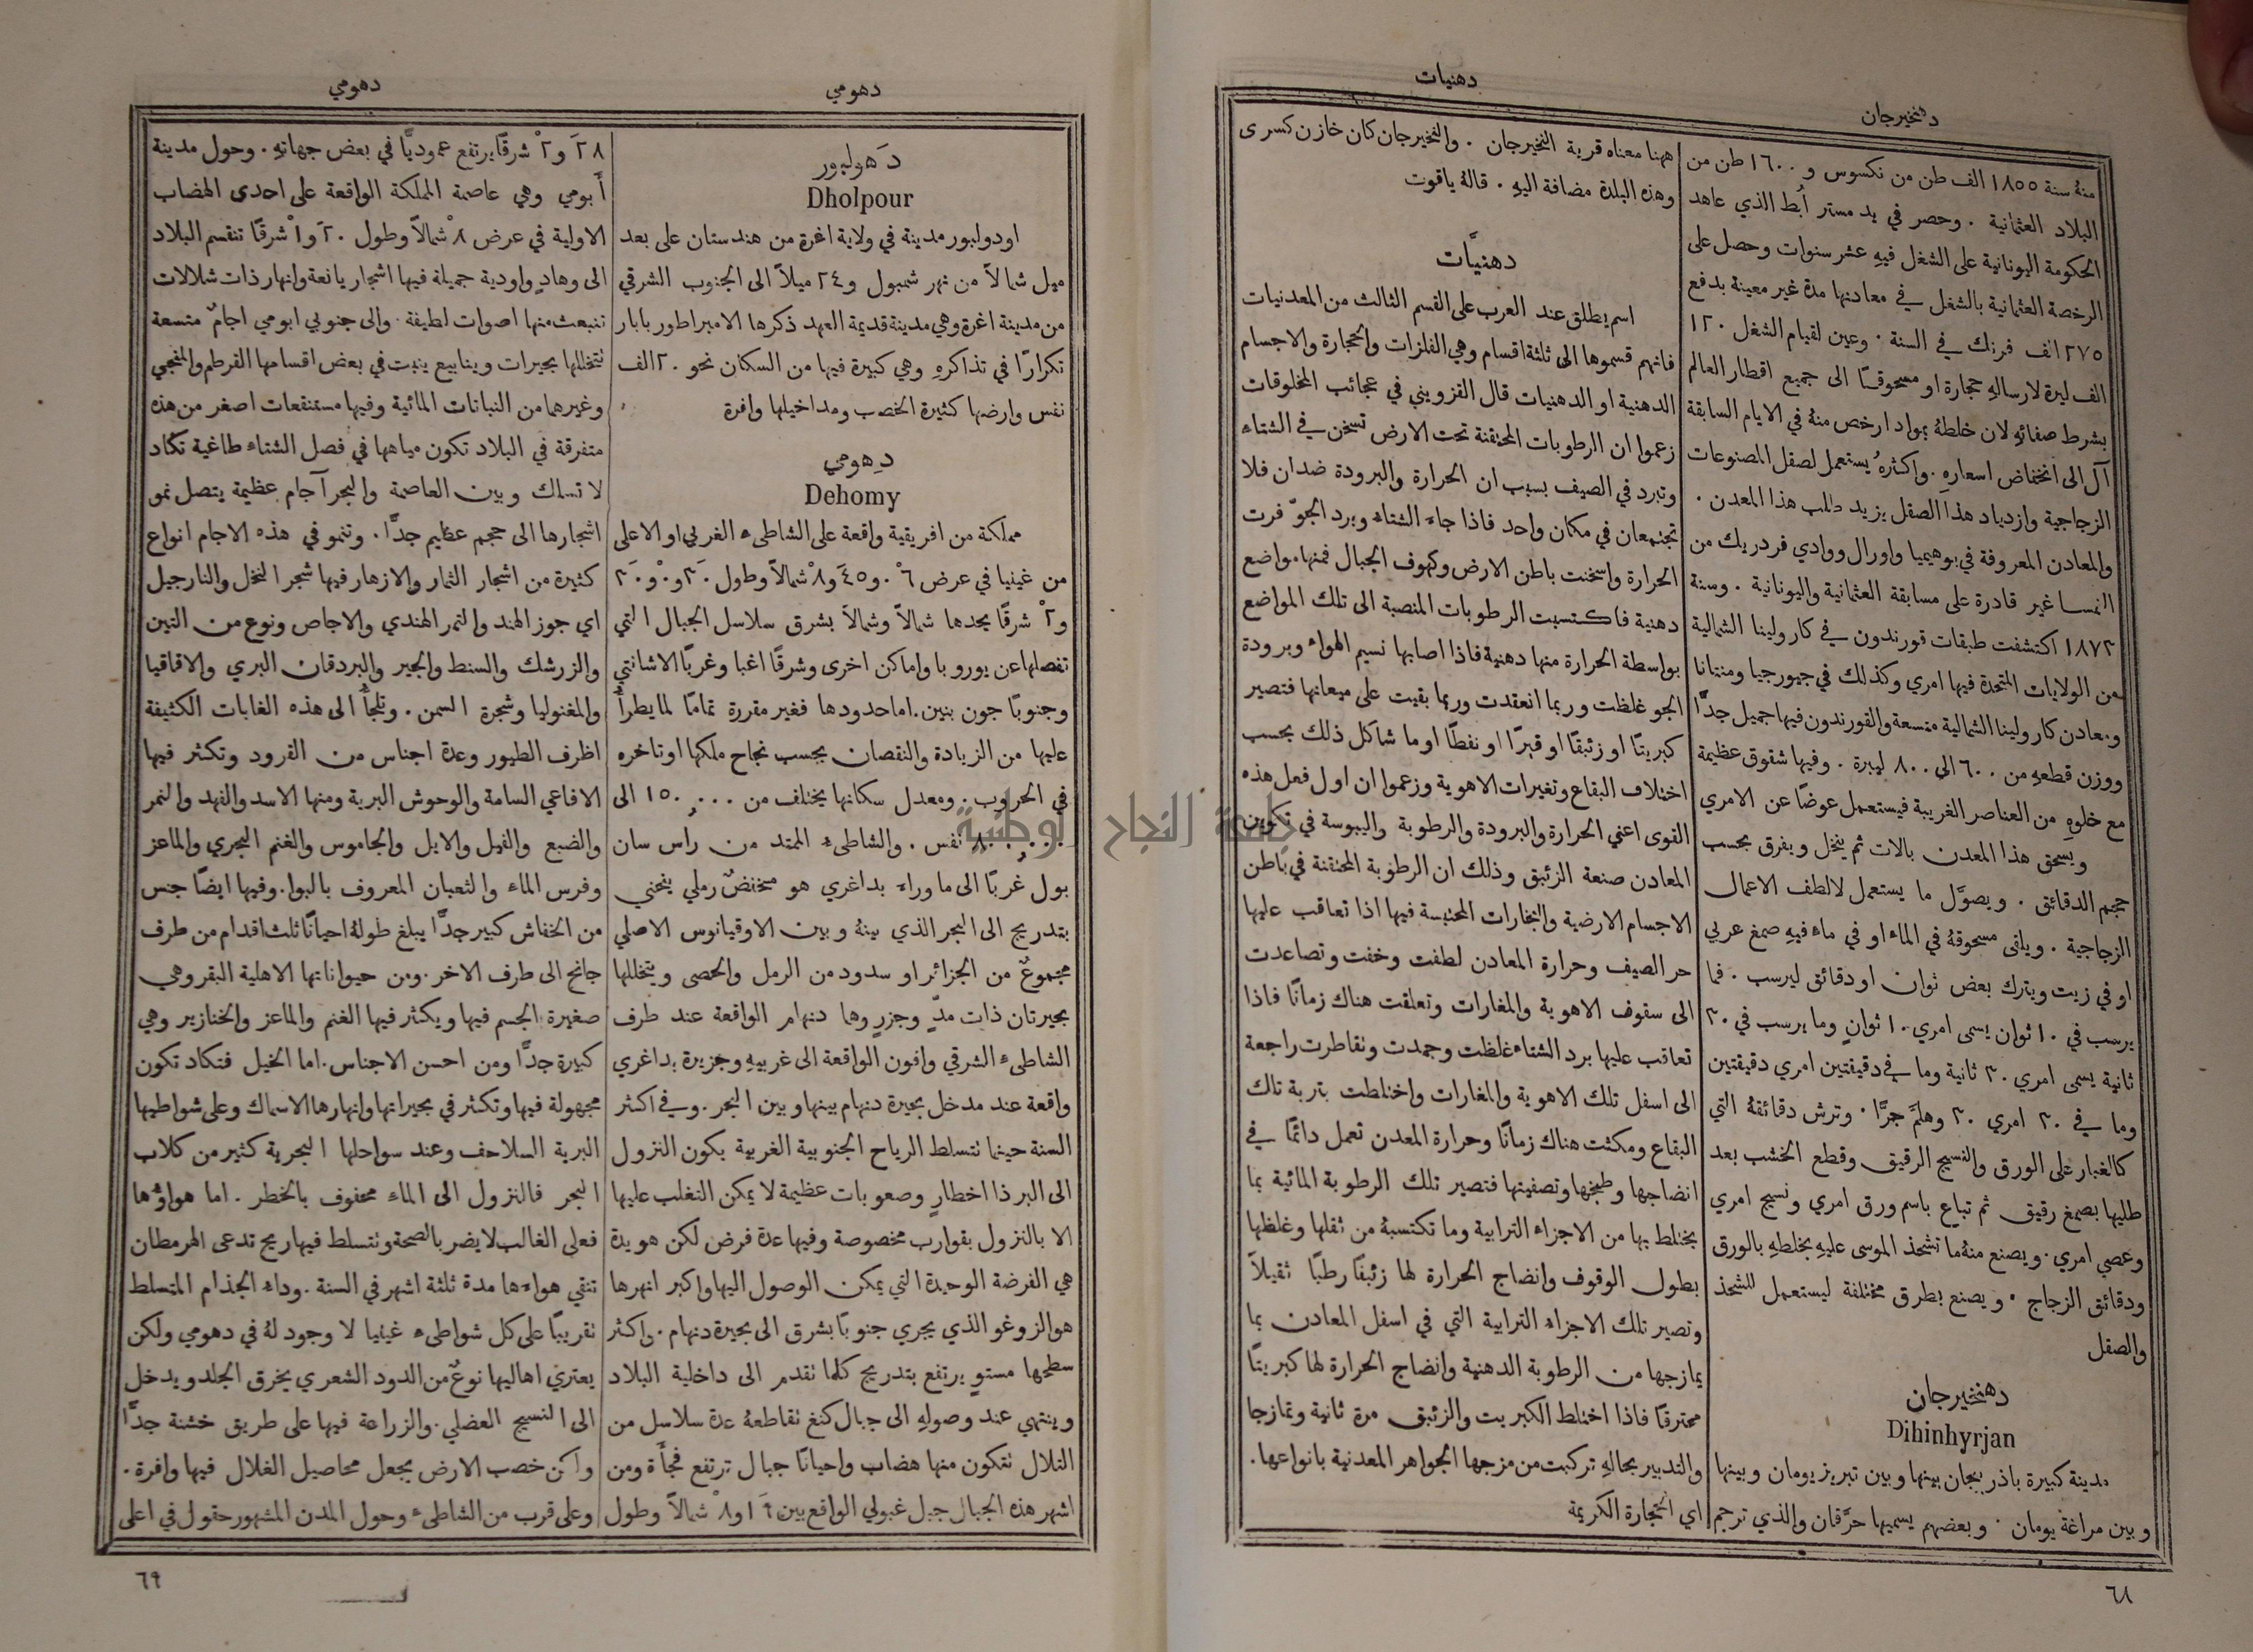 دهنخيرجان
دهنيات
منهُ سنة ١٨٥٥ الف طن من نكسوس و ١٦٠٠ طن من
البلاد العثمانية . وحصر في يد مستر أبط الذي عاهد
الحكومة اليونانية على الشغل فيهِ عشر سنوات وحصل على
الرخصة العثمانية بالشغل في معادنها مدة غير معينة بدفع
٢٧٥ الف فرنك في السنة . وعين لقيام الشغل ١٢٠
الف ليرة لارسالهِ حجارة او مسحوقًا الى جميع اقطار العالم
بشرط صفائهِ لان خلطهُ بمواد ارخص منهُ في الايام السابقة
آل الى انخفاض اسعارهِ . واكثرهُ يستعمل لصقل المصنوعات
الزجاجية وازدياد هذا الصقل يزيد طلب هذا المعدن .
والمعادن المعروفة في بوهيميا واورال ووادي فردريك من
النمسا غير قادرة على مسابقة العثمانية واليونانية . وسنة
١٨٧٢ اكتشفت طبقات قورندون في كارولينا الشمالية
من الولايات المتحدة فيها امري وكذلك في جيورجيا ومنتانا
ومعادن كارولينا الشمالية متسعة والقورندون فيها جميل جدًّا
ووزن قطعهِ من ٦٠٠ الى ٨٠٠ ليبرة . وفيها شقوق عظيمة
مع خلوهِ من العناصر الغريبة فيستعمل عوضًا عن الامري
ويسحق هذا المعدن بالات ثم ينخل ويفرق بحسب
حجم الدقائق . ويصوَّل ما يستعمل لالطف الاعمال
الزجاجية . ويلقى مسحوقهُ في الماء او في ماء فيهِ صمغ عربي
او في زيت ويترك بعض ثوان او دقائق ليرسب . فما
يرسب في ١٠ ثوان يسمى امري ١٠ ثوانٍ وما يرسب في ٣٠
ثانية يسمى امري ٣٠ ثانية وما في دقيقتين امري دقيقتين
وما في ٣٠ امري ٣٠ وهلمَّ جرًّا . وترش دقائقهُ التي
كالغبار على الورق والنسيج الرقيق وقطع الخشب بعد
طليها بصمغ رقيق ثم تباع باسم ورق امري ونسيج امري
وعصي امري . ويصنع منهُ ما تشحذ الموسى عليهِ بخلطهِ بالورق
ودقائق الزجاج . ويصنع بطرق مختلفة ليستعمل للشحذ
والصقل
دهنخيرجان
Dihinhyrjan
مدينة كبيرة باذربيجان بينها وبين تبريز يومان وبينها
وبين مراغة يومان . وبعضهم يسميها حرَّقان والذي ترجم
ههنا معناه قرية النخيرجان . والنخيرجان كان خازن كسرى
وهذه البلدة مضافة اليهِ . قالهُ ياقوت
دهنيَّات
اسم يطلق عند العرب على القسم الثالث من المعدنيات
فانهم قسموها الى ثلثة اقسام وهي الفلزات والحجارة والاجسام
الدهنية او الدهنيات قال القزويني في عجائب المخلوقات
زعموا ان الرطوبات المحتقنة تحت الارض تسخن في الشتاء
وتبرد في الصيف بسبب ان الحرارة والبرودة ضدان فلا
تجتمعان في مكان واحد فاذا جاء الشتاء وبرد الجوّ فرت
الحرارة واسخنت باطن الارض وكهوف الجبال فمنها مواضع
دهنية فاكتسبت الرطوبات المنصبة الى تلك المواضع
بواسطة الحرارة منها دهنية فاذا اصابها نسيم الهواء وبرودة
الجو غلظت وربما انعقدت وربما بقيت على ميعانها فتصير
كبريتًا او زئبقًا او قيرًا او نفطًا او ما شاكل ذلك بحسب
اختلاف البقاع وتغيرات الاهوية وزعموا ان اول فعل هذه
القوى اعني الحرارة والبرودة والرطوبة واليبوسة في تكوين
المعادن صنعة الزئبق وذلك ان الرطوبة المحتقنة في باطن
الاجسام الارضية والبخارات المحتبسة فيها اذا تعاقب عليها
حر الصيف وحرارة المعادن لطفت وخفت وتصاعدت
الى سقوف الاهوية والمغارات وتعلقت هناك زمانًا فاذا
تعاقب عليها برد الشتاء غلظت وجمدت وتقاطرت راجعة
الى اسفل تلك الاهوية والمغارات واختلطت بتربة تلك
البقاع ومكثت هناك زمانًا وحرارة المعدن تعمل دائمًا في
انضاجها وطبخها وتصفيتها فتصير تلك الرطوبة المائية بما
يختلط بها من الاجزاء الترابية وما تكتسبهُ من ثقلها وغلظها
بطول الوقوف وانضاج الحرارة لها زئبقًا رطبًا ثقيلاً
وتصير تلك الاجزاء الترابية التي في اسفل المعادن بما
يمازجها من الرطوبة الدهنية وانضاج الحرارة لها كبريتًا
محترقًا فاذا اختلط الكبريت والزئبق مرة ثانية وتمازجا
والتدبير بحالهِ تركبت من مزجها الجواهر المعدنية بانواعها .
اي الحجارة الكريمة
٦٨
دهومي
دهومي
دَهولپور
Dholpour
او دولبور مدينة في ولاية اغرة من هندستان على بعد
ميل شمالاً من نهر شمبول و٢٤ ميلاً الى الجنوب الشرقي
من مدينة اغرة وهي مدينة قديمة العهد ذكرها الامبراطور بابار
تكرارًا في تذاكرهِ وهي كبيرة فيها من السكان نحو ٢٠ الف
نفس وارضها كثيرة الخصب ومداخيلها وافرة
دِهومي
Dehomy
مملكة من افريقية واقعة على الشاطىء الغربي او الاعلى
من غينيا في عرض ٦ْ و٤٥َ و٨ْ شمالاً وطول
و٢ْ شرقًا يحدها شمالاً وشمالاً بشرق سلاسل الجبال التي
تفصلها عن يوروبا واماكن اخرى وشرقًا اغبا وغربًا الاشانتي
وجنوبًا جون بنين . اما حدودها فغير مقررة تمامًا لما يطرأُ
عليها من الزيادة والنقصان بحسب نجاح ملكها او تاخره
في الحروب . ومعدل سكانها يختلف من ١٥٠,٠٠٠ الى
نفس . والشاطىء الممتد من راس سان
بول غربًا الى ما وراء بداغري هو منخفضٌ رملي ينحني
بتدريج الى البحر الذي بينهُ وبين الاوقيانوس الاصلي
مجموعٌ من الجزائر او سدود من الرمل والحصى ويتخللها
بحيرتان ذات مدّ وجزر وهما دنهام الواقعة عند طرف
الشاطىء الشرقي وافون الواقعة الى غربيهِ وجزيرة بداغري
واقعة عند مدخل بحيرة دنهام بينها وبين البحر . وفي اكثر
السنة حينما تتسلط الرياح الجنوبية الغربية يكون النزول
الى البر ذا اخطارٍ وصعوبات عظيمة لا يمكن التغلب عليها
الا بالنزول بقوارب مخصوصة وفيها عدة فرض لكن هويدة
هي الفرضة الوحيدة التي يمكن الوصول اليها واكبر انهرها
هو الزوغو الذي يجري جنوبًا بشرق الى بحيرة دنهام . واكثر
سطحها مستوٍ يرتفع بتدريج كلما نقدم الى داخلية البلاد
وينتهي عند وصولهِ الى جبال كنغ نقاطعهُ عدة سلاسل من
التلال نتكون منها هضاب واحيانًا جبال ترتفع فجأةً ومن
اشهر هذه الجبال جبل غبولي الواقع بين و٨ْ شمالاً وطول
٢٨َ و٢ْ شرقًا يرتفع عموديًّا في بعض جهاتهِ . وحول مدينة
أَبومي وهي عاصمة المملكة الواقعة على احدى الهضاب
الاولية في عرض ٨ْ شمالاً وطول ٢٠َ و١ْ شرقًا تنقسم البلاد
الى وهادٍ واودية جميلة فيها اشجار يانعة وانهار ذات شلالات
تنبعث منها اصوات لطيفة . والى جنوبي ابومي اجامٌ متسعة
تتخللها بحيرات وينابيع ينبت في بعض اقسامها القرطم والخنجي
وغيرها من النباتات المائية وفيها مستنقعات اصغر من هذه
متفرقة في البلاد تكون مياهها في فصل الشتاء طاغية تكاد
لا تسلك وبين العاصمة والبحر آجام عظيمة يتصل نمو
اشجارها الى حجم عظيم جدًّا . وتنمو في هذه الاجام انواع
كثيرة من اشجار الثمار والازهار فيها شجر النخل والنارجيل
اي جوز الهند والتمر الهندي والاجاص ونوع من التين
والزرشك والسنط والجير والبردقان البري والاقاقيا
والمغنوليا وشجرة السمن . وتلجأُ الى هذه الغابات الكثيفة
اظرف الطيور وعدة اجناس من القرود وتكثر فيها
الافاعي السامة والوحوش البرية ومنها الاسد والفهد والنمر
والضبع والفيل والابل والجاموس والغنم البحري والماعز
وفرس الماء والثعبان المعروف بالبوا . وفيها ايضًا جنس
من الخفاش كبير جدًّا يبلغ طولهُ احيانًا ثلث اقدام من طرف
جانح الى طرف الاخر . ومن حيواناتها الاهلية البقر وهي
صغيرة الجسم فيها ويكثر فيها الغنم والماعز والخنازير وهي
كبيرة جدًّا ومن احسن الاجناس . اما الخيل فتكاد تكون
مجهولة فيها وتكثر في بحيراتها وانهارها الاسماك وعلى شواطيها
البرية السلاحف وعند سواحلها البحرية كثير من كلاب
البحر فالنزول الى الماء محفوف بالخطر . اما هواؤها
فعلى الغالب لا يضر بالصحة ونتسلط فيها ريح تدعى الهرمطان
تنقي هواءها مدة ثلثة اشهر في السنة . وداء الجذام المتسلط
تقريبًا على كل شواطىء غينيا لا وجود لهُ في دهومي ولكن
يعتري اهاليها نوعٌ من الدود الشعري يخرق الجلد ويدخل
الى النسيج العضلي . والزراعة فيها على طريق خشنة جدًّا
ولكن خصب الارض يجعل محاصيل الغلال فيها وافرة .
وعلى قرب من الشاطىء وحول المدن المشهور حقول في اعلى
٦٩
جامعة النجاح الوطنية